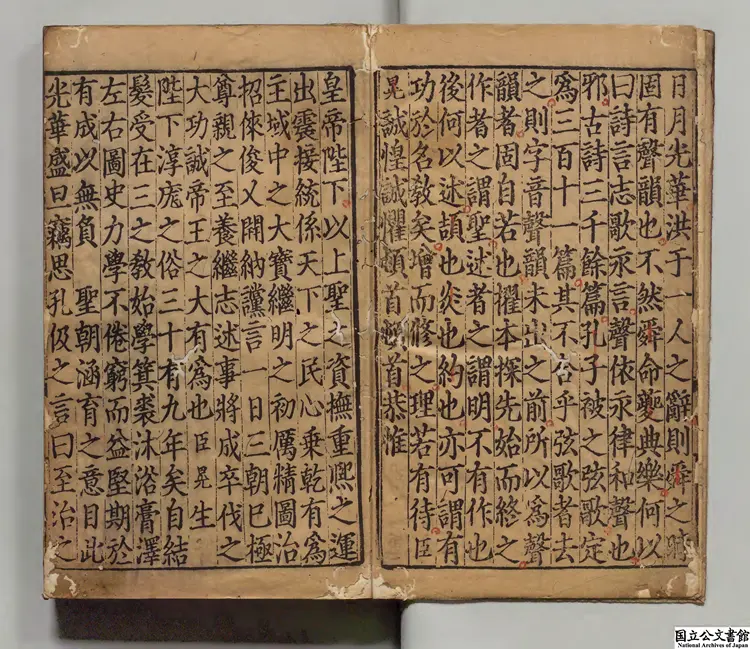 日月光華洪于一人之辭則舜之時
固有聲韻也不然舜命夔典樂何以
曰詩言志歌永言聲依永律和聲也
邪古詩三千餘篇孔子被之弦歌定
爲三百十一篇其不合乎弦歌者去
之則字音聲韻未出之前所以爲聲
韻者固自若也擢本探先始而終之
作者之謂聖述者之謂明不有作也
後何以述頡也炎也約也亦可謂有
功於名敎矣增而修之理若有待臣
晃誠惶誠懼頓首頓首恭惟
皇帝陛下以上聖之資撫重熙之運
出震接統係天下之民心乘乾有爲
主域中之大寶繼明之初厲精圖治
招倈俊乂開納讜言一日三朝已極
尊親之至養繼志述事將成卒伐之
大功誠帝王之大有爲也臣晃生
陛下淳厖之俗三十有九年矣自結
髮受在三之敎始學箕裘沐浴膏澤
左右圖史力學不倦窮而益堅期於
有成以無負聖朝涵育之意目此
光華盛日竊思孔伋之言曰至治之
国立公文書館
National Archives of Japan